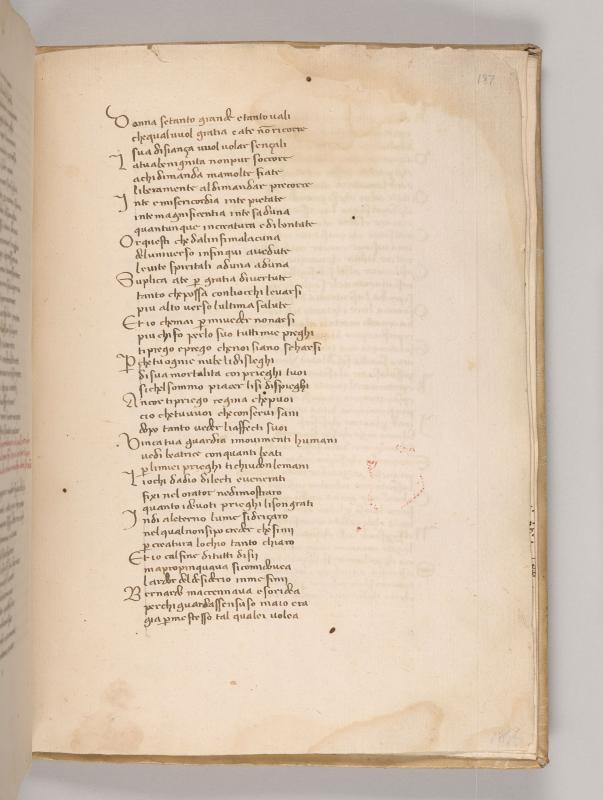 187
Donna se tanto grande e tanto vali
che qual vuol gratia e a te nō ricorre
sua disiança vuol volar sença li
La tua benignita non pur soccore
a chi dimanda ma molte fiate
liberamente al dimandar precorre
In te e misericordia in te pietate
in te magnificentia in te saduna
quantunque in creatura e di bontate
Or questi che dal infima lacuna
del universo infin qui a vedute
le vite spiritali ad una ad una
Suplica a te p gratia di vertute
tanto che possa con li occhi levarsi
piu alto verso lultima salute
Et io che mai p mi veder non arsi
piu chi fo per lo suo tutti mie preghi
ti priego e prego che non siano scharsi
Pche tu ogni nube li disleghi
di sua mortalita coi prieghi tuoi
si chel sommo piacer li si dispieghi
Ancor ti priego regina che puoi
cio che tu vuoi che conservi sani
dopo tanto veder li affecti suoi
Vinca tua guardia i movimenti humani
vedi beatrice con quanti beati
p li miei prieghi ti chiudon le mani
Li ochi da dio dilecti e venerati
fixi nel orator ne dimostraro
quanto i devoti prieghi li son grati
Indi al eterno lume si driçaro
nel qual non si po creder che sinii
p creatura lochio tanto chiaro
Et io cal fine di tutti disii
mapropinquava si com i dovea
lardor del desiderio in me finii
Bernardo maccennava e soridea
perchi guardassi suso ma io era
gia p me stesso tal qual ei volea